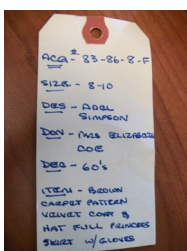 ACQ# - 83-86-8-F
SIZE - 8-10
DES - ADEL
SIMPSON
DON - MRS ELIZABETH
COE
DEC - 60's
ITEM - BROWN
CARPET PATTERN
VELVET COAT &
HAT FULL PRINCESS
SKIRT W/ GLOVES